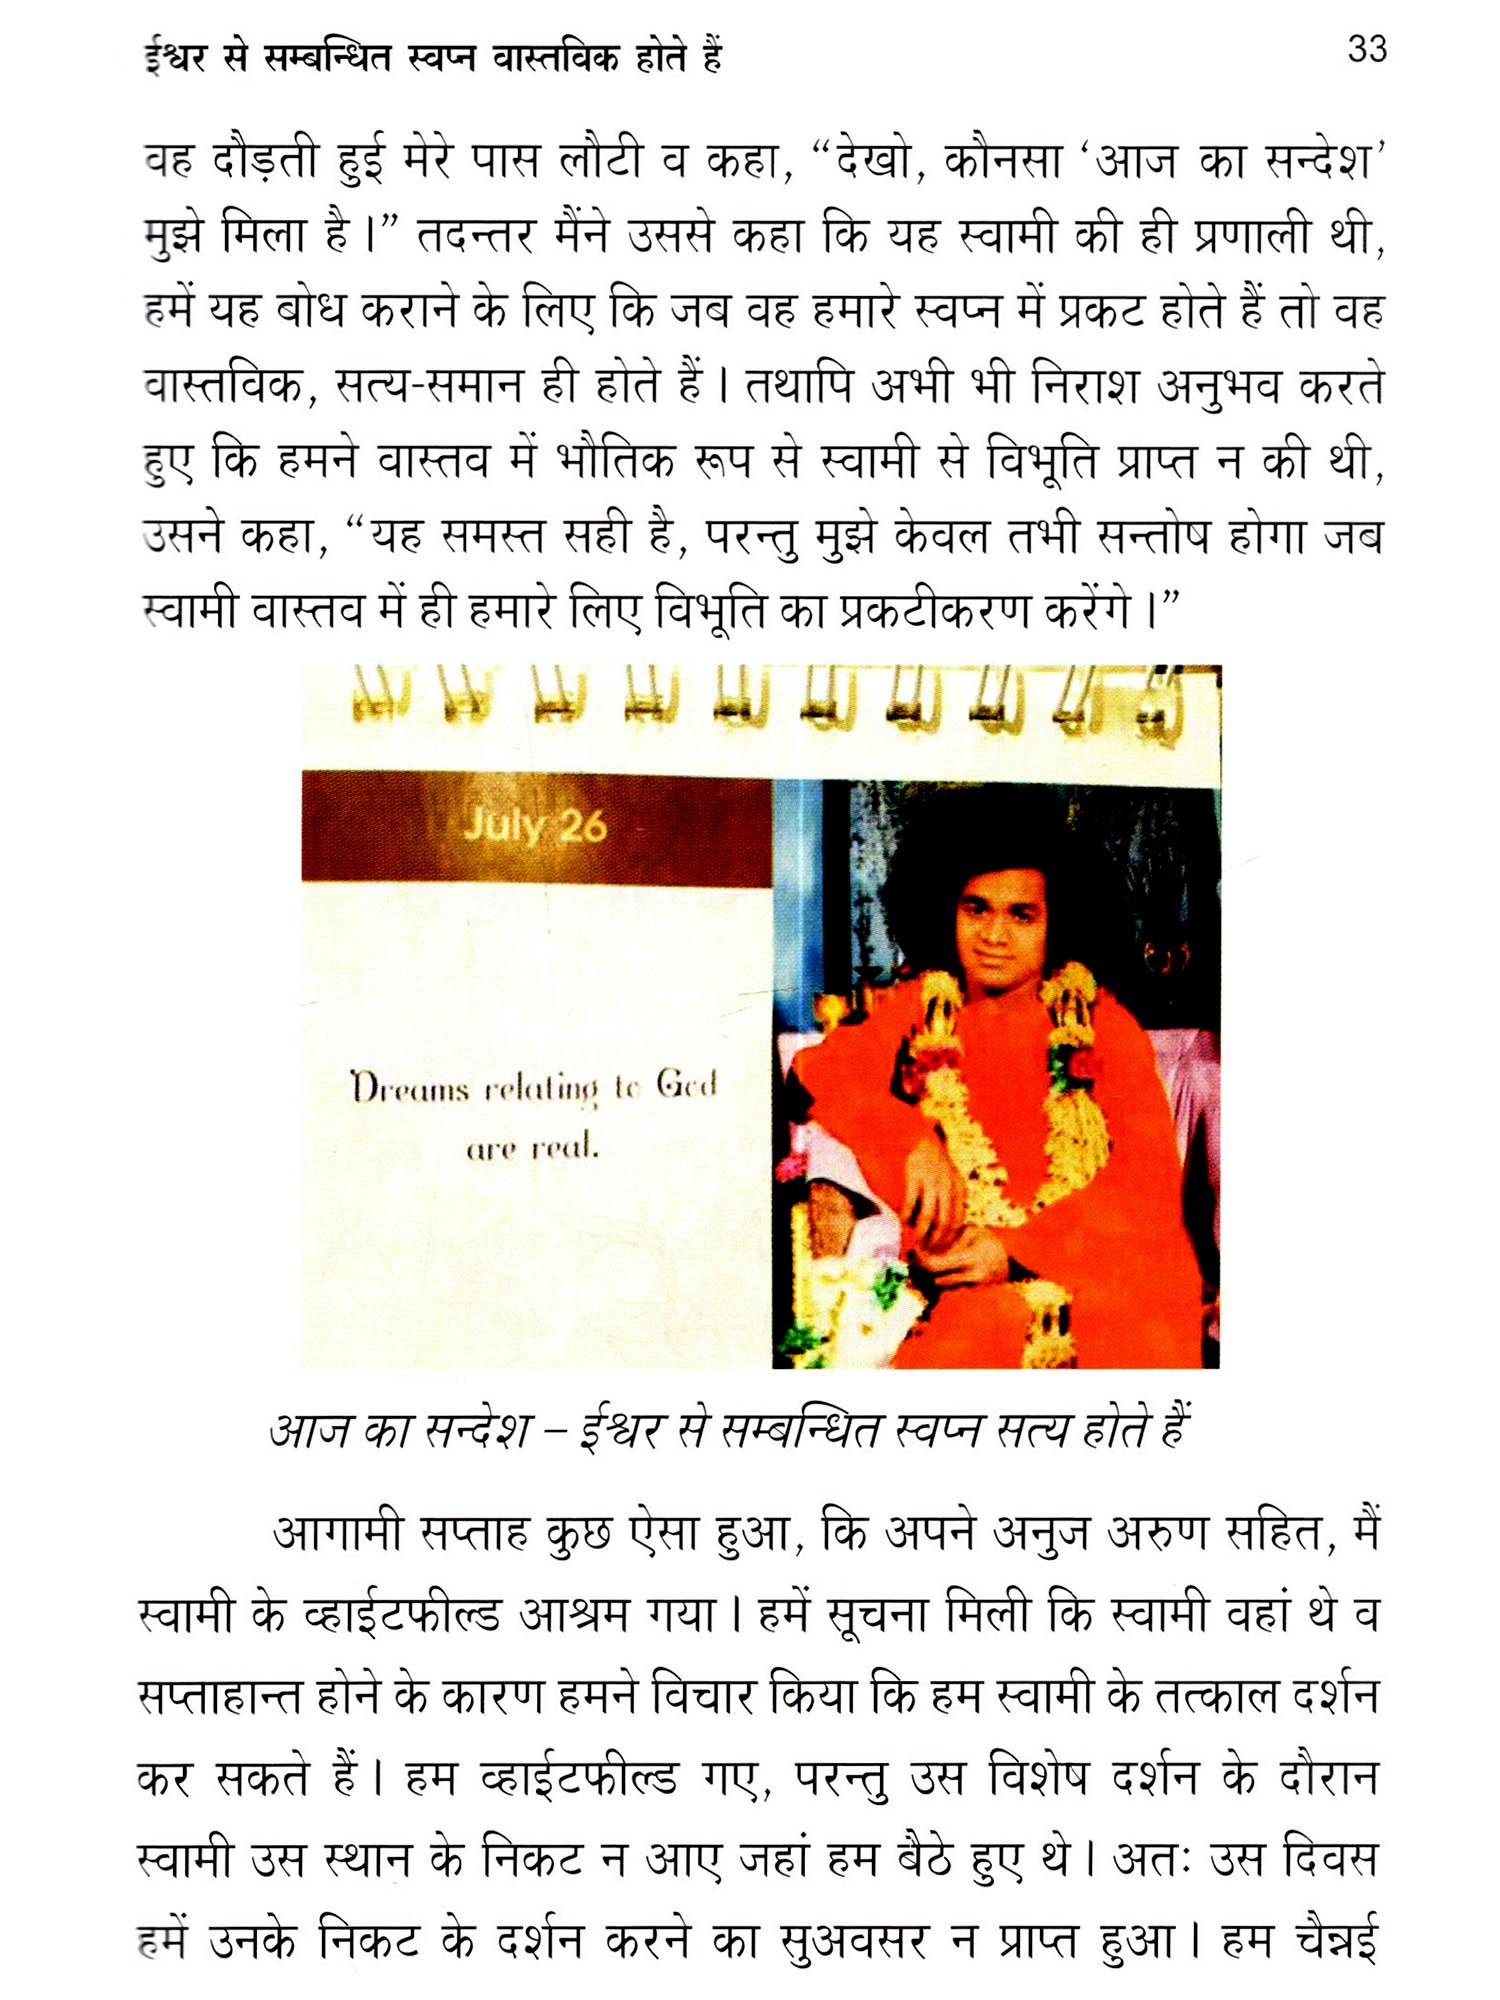 ईश्वर से सम्बन्धित स्वप्न वास्तविक होते हैं 33
वह दौड़ती हुई मेरे पास लौटी व कहा, “देखो, कौनसा ‘आज का सन्देश’
मुझे मिला है।” तदन्तर मैंने उससे कहा कि यह स्वामी की ही प्रणाली थी,
हमें यह बोध कराने के लिए कि जब वह हमारे स्वप्न में प्रकट होते हैं तो वह
वास्तविक, सत्य-समान ही होते हैं। तथापि अभी भी निराश अनुभव करते
हुए कि हमने वास्तव में भौतिक रूप से स्वामी से विभूति प्राप्त न की थी,
उसने कहा, “यह समस्त सही है, परन्तु मुझे केवल तभी सन्तोष होगा जब
स्वामी वास्तव में ही हमारे लिए विभूति का प्रकटीकरण करेंगे।”
July 26
Dreams relating to God
are real.
आज का सन्देश – ईश्वर से सम्बन्धित स्वप्न सत्य होते हैं
आगामी सप्ताह कुछ ऐसा हुआ, कि अपने अनुज अरुण सहित, मैं
स्वामी के व्हाईटफील्ड आश्रम गया। हमें सूचना मिली कि स्वामी वहां थे व
सप्ताहान्त होने के कारण हमने विचार किया कि हम स्वामी के तत्काल दर्शन
कर सकते हैं। हम व्हाईटफील्ड गए, परन्तु उस विशेष दर्शन के दौरान
स्वामी उस स्थान के निकट न आए जहां हम बैठे हुए थे। अतः उस दिवस
हमें उनके निकट के दर्शन करने का सुअवसर न प्राप्त हुआ। हम चैन्नई